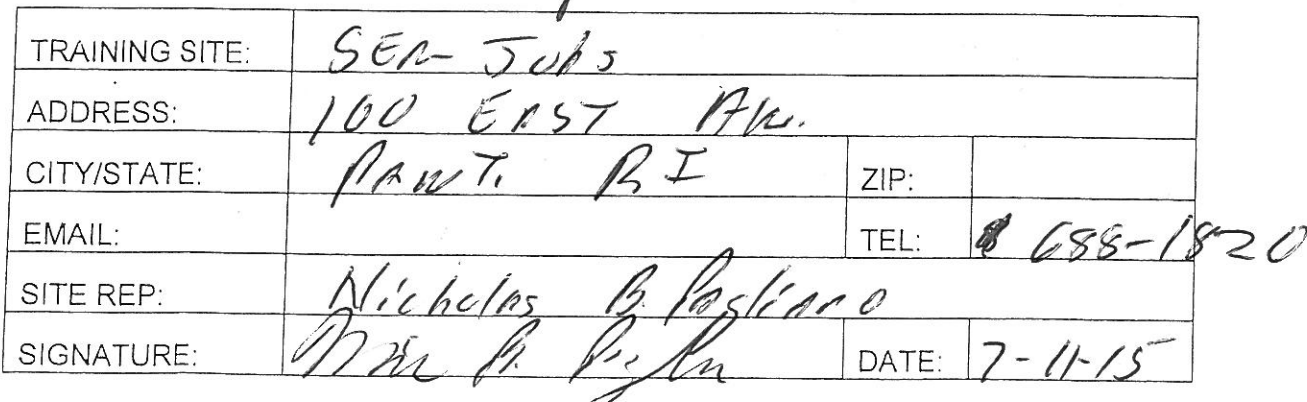 TRAINING SITE: SER-Jobs
ADDRESS: 100 EAST Av.
CITY/STATE: PAWT. RI ZIP:
EMAIL: TEL: 688-1820
SITE REP: Nicholas B. Pagliaro
SIGNATURE: DATE: 7-11-15